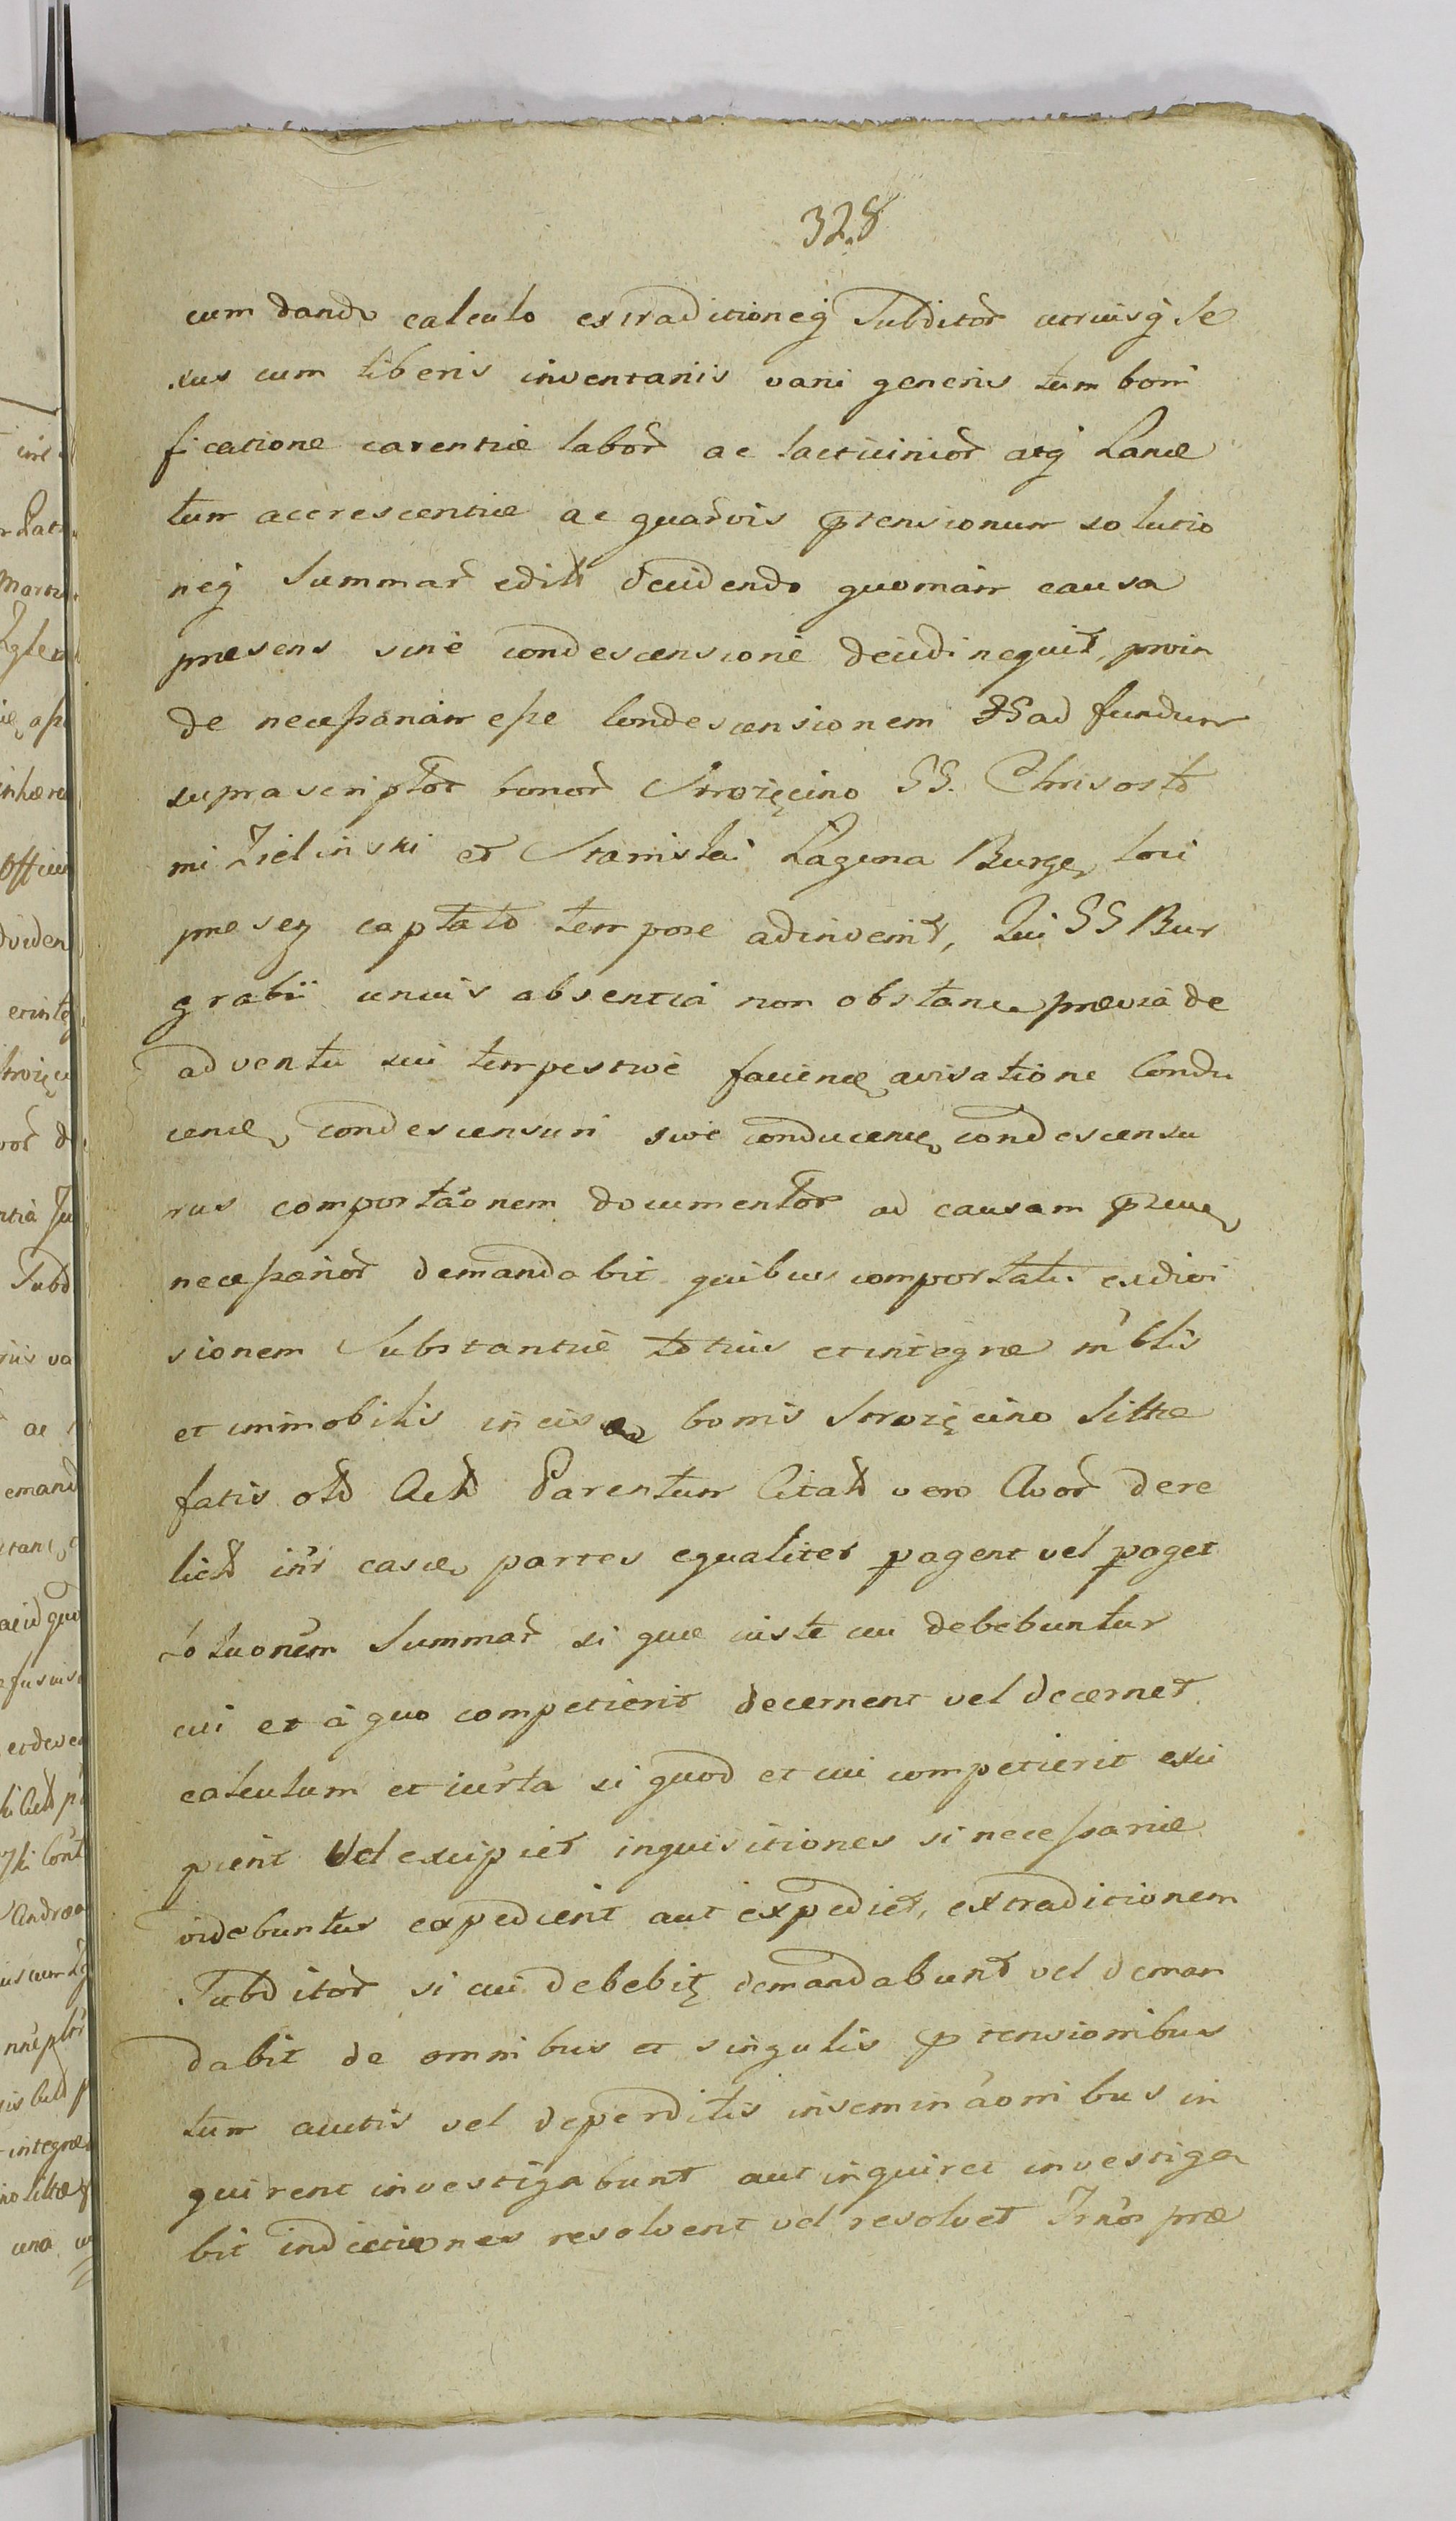 328
cum dando calculo extraditioneq̃ Subditor̃ utriusq̃ Se
xus cum liberis inventariis varii generis tum boni
ficatione carentiæ labor̃ ac lacticinior̃ atq̃ Lanæ
tum accrescentiæ ac quarvis prtensionum solutio
neq̃ Summar̃ decidendo quoniam causa
præsens sine condescensione decidi nequit, proin
de necessariam esse Condescensionem ad fundum
suprascriptor̃ bonor̃ Strozięcino GG. Chrisosto
mi Zielinski et Stanislai Laguna Burg loci
præsen captato tempore adinvenit, Qui GG Bur
grabii unuis absentia non obstan prævia de
adventu sui tempestive faciend avisatione Condu
cend condescensuri sive conducend condescensu
rus comportãonem documentor̃ ad causam
necessarior̃ demandabit quibus comportatis exdivi
sionem Substantiæ totius et integræ m̃blis
et immobilis in bonis Strozięcino
fatis Act̃ Parentum Citat̃ vero Avor̃ dere
lict̃ int̃ partes equaliter pagent vel paget
solu̇onem Summar̃ si quæ iuste cui debebuntur
cui et à quo competierit decernent vel decernet
calculum et iur̃ta si quod et cui competierit exci
pient Vel excipiet inquisitiones si necessariæ
videbuntur expedient aut expediet, extraditionem
Subditor̃ si cui debebit̃ demandabunt vel deman
dabit de omnibus et singulis prtensionibus
tum auctis vel deperditis inseminãonibus in
quirent investigabunt aut inquiret investiga
bit indictiones resolvent vel resolvet præ